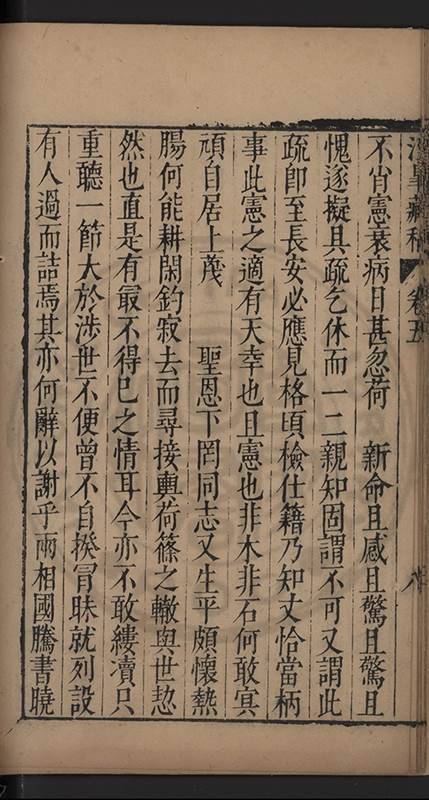 涇皐藏稿 卷五 八
不肖憲衰病日甚忽荷　新命且感且驚且驚且
愧遂擬具疏乞休而一二親知固謂不可又謂此
疏卽至長安必應見格頃檢仕籍乃知丈恰當柄
事此憲之適有天幸也且憲也非木非石何敢㝠
頑自居上蔑　　聖恩下罔同志又生平頗懷熱
腸何能耕閑釣寂去而尋接輿荷篠之轍與世恝
然也直是有最不得已之情耳今亦不敢縷瀆只
重聽一節大於涉世不便曾不自揆冐昧就列設
有人過而詰焉其亦何辭以謝乎兩相國騰書曉